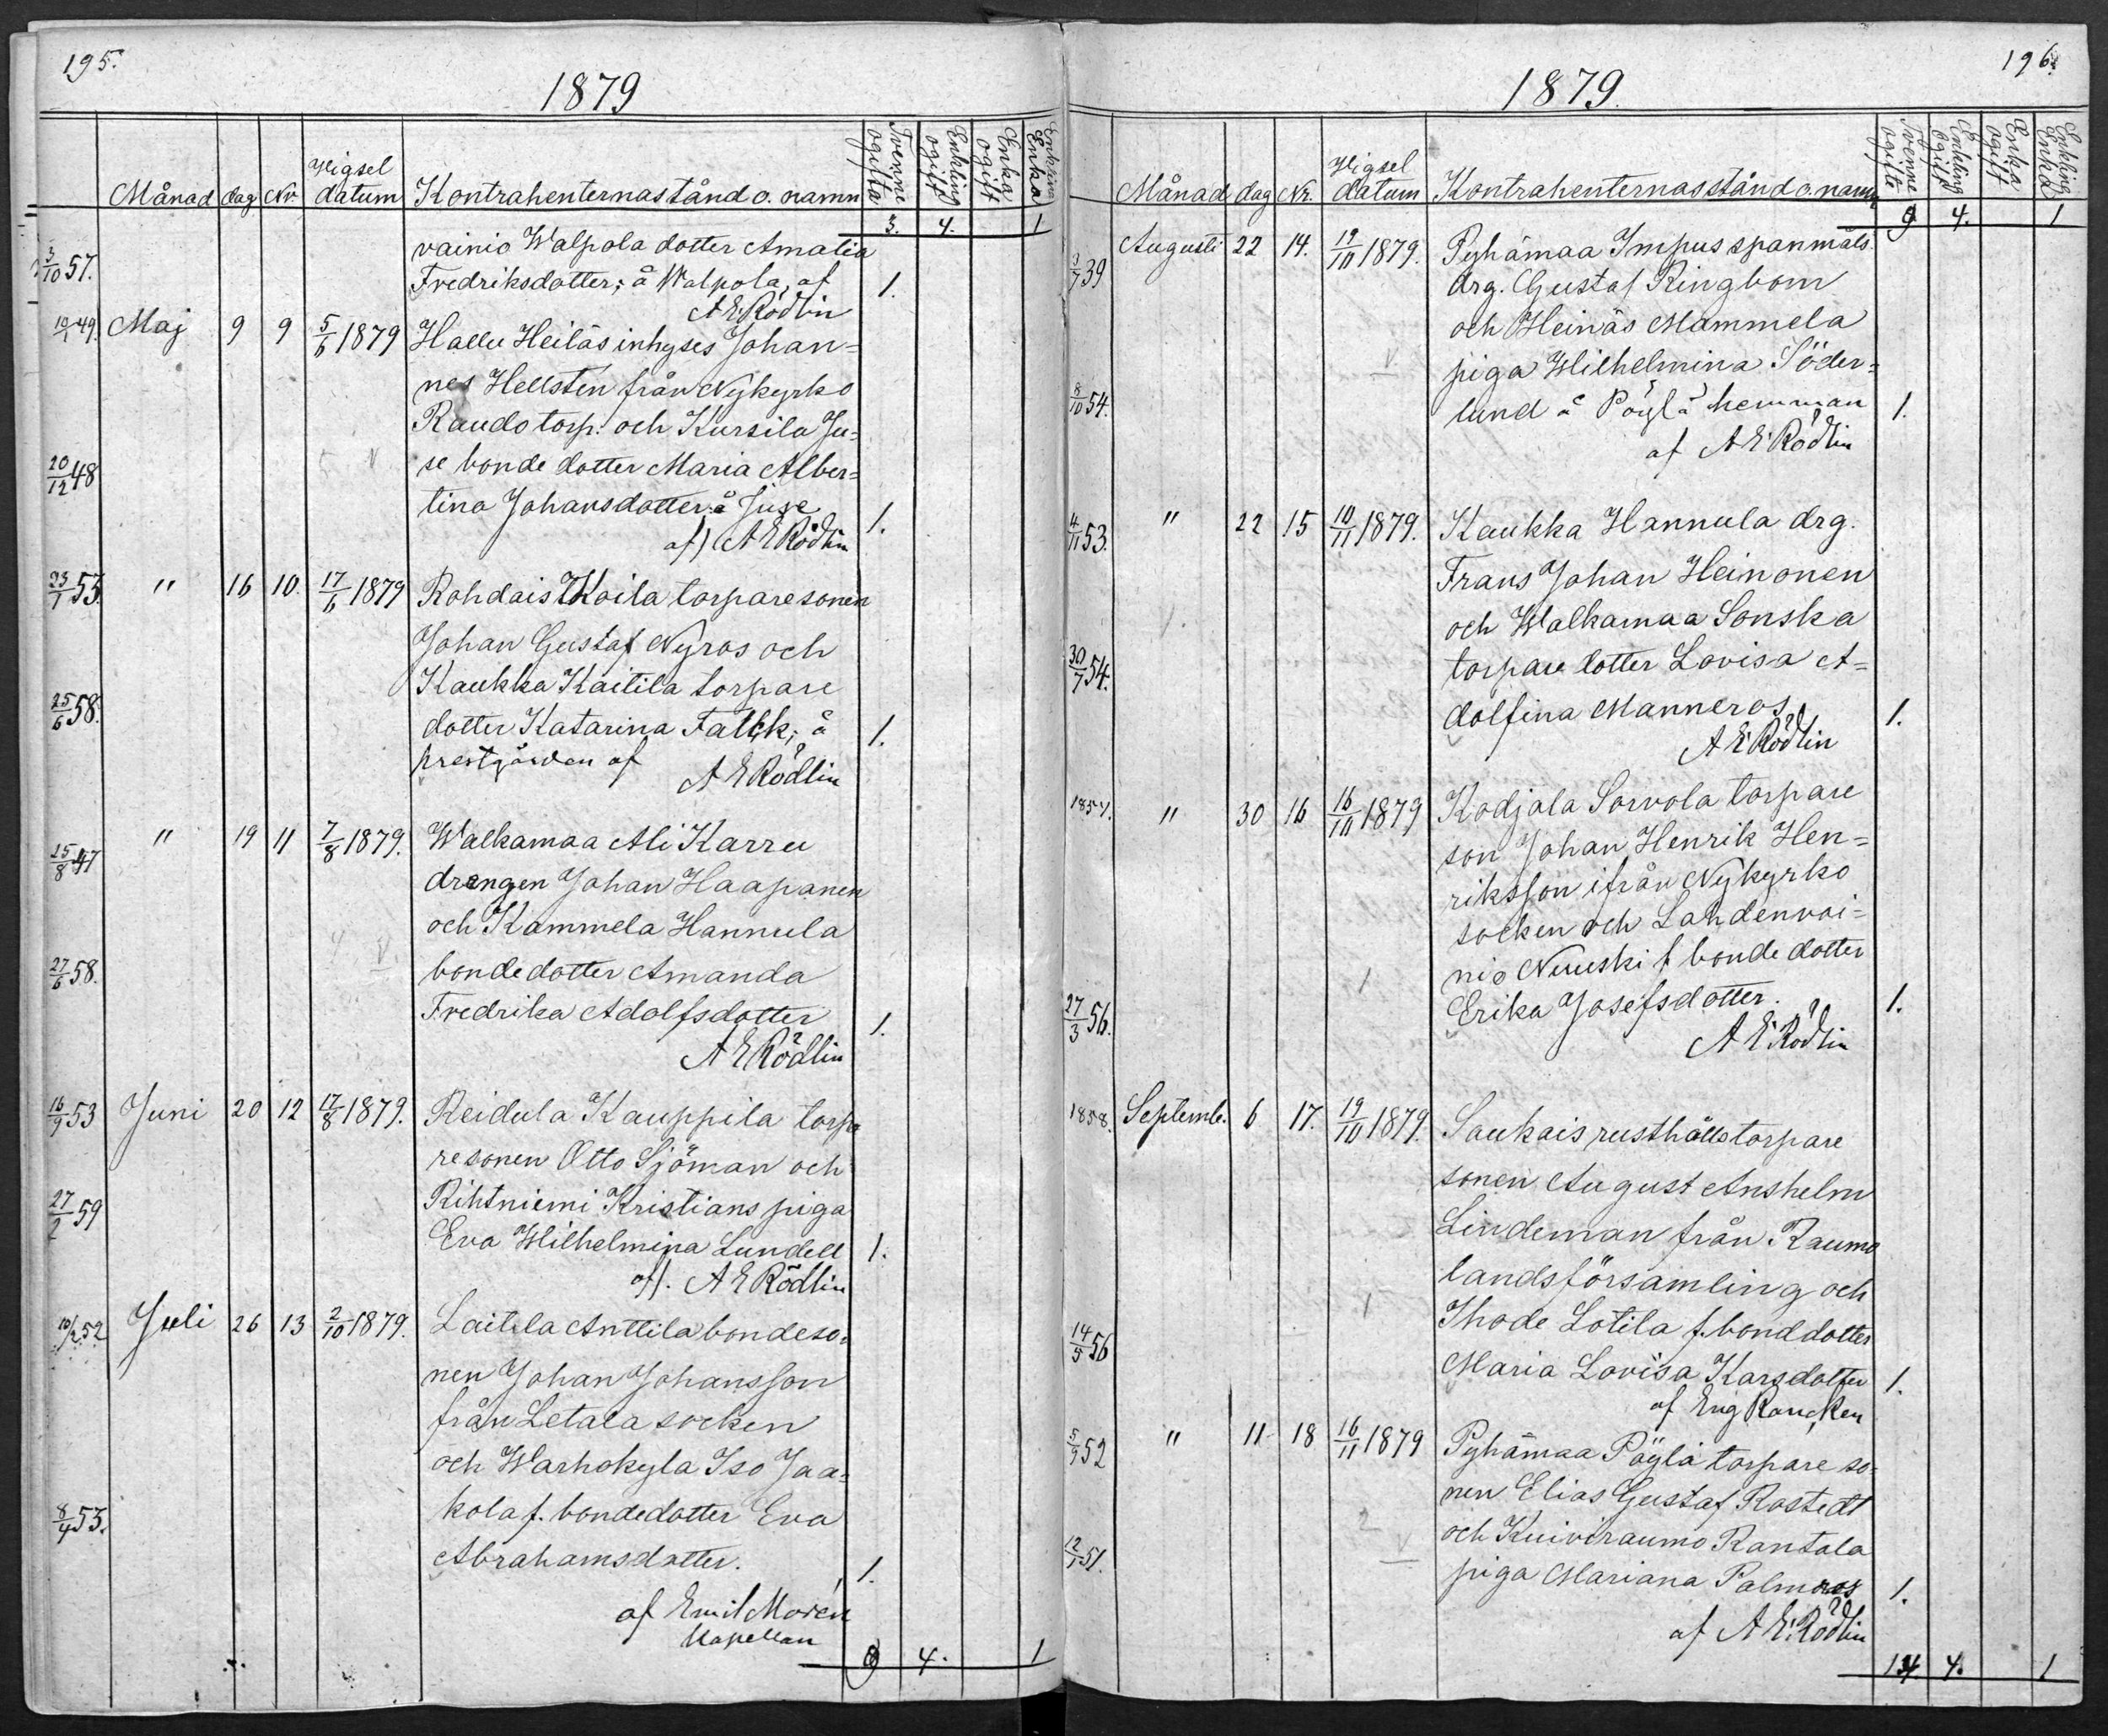 195.
1879
Månad dag Nr Vigsel datum Kontrahenternas stånd o. namn Tvenne ogifta Enkling ogift Enka ogift Enkling Enka
3. 4. 1
3/10 57. vainio Walpola dotter Amalia
Fredriksdotter; å Walpola, af 1.
A E Rödlin
10/1 49. Maj 9 9 5/6 1879 Hallu Heiläs inhyses Johan=
nes Hellsten från Nykyrko
Raudo torp. och Kursila Ju=
20/12 48 se bonde dotter Maria Alber=
tina Johansdotter å Juse 1.
af) A E Rödlin
23/1 53. " 16 10. 17/6 1879 Rohdais Koila torparesonen
Johan Gustaf Nyros och
Kaukka Kaitila torpare
25/6 58. dotter Katarina Falck; å 1.
prestgården af
A E Rödlin
25/8 47 " 19 11 7/8 1879. Walkamaa Ali Karru
drengen Johan Haapanen
och Kammela Hannula
27/6 58. bondedotter Amanda
Fredrika Adolfsdotter 1.
A E Rödlin
16/9 53 Juni 20 12 17/8 1879. Reidula Kauppila torpa
resonen Otto Sjöman och
27/2 59 Rihtniemi Kristians piga
Eva Wilhelmina Lundell 1.
af). A E Rödlin
10/2 52 Juli 26 13 2/10 1879. Laitila Anttila bondeso=
nen Johan Johansson
från Letala socken
och Warhokyla Iso Jaa=
8/4 53. kola f. bondedotter Eva
Abrahamsdotter. 1.
af Emil Morén
Kapellan
9 4. 1
196.
1879.
Månad dag Nr. Vigsel datum Kontrahenternas stånd o. namn Tvenne ogifte Enkling Ogift Enka Ogift Enkling Enka
9 4. 1
3/7 39 Augusti 22 14. 19/10 1879. Pyhämaa Impus spanmåls
drg. Gustaf Ringbom
och Heinäs Mammela
piga Wilhelmina Söder=
8/10 54. lund å Pöylä hemman 1.
af A E Rödlin
4/11 53. " 22 15 10/11 1879. Kaukka Hannula drg.
Frans Johan Heinonen
och Walkamaa Sonska
30/7 54. torpare dotter Lovisa A=
dolfina Manneros 1.
A E Rödlin
1857. " 30 16 16/10 1879 Kodjala Sorvola torpare
son Johan Henrik Hen=
riksson ifrån Nykyrko
socken och Lahdenvai=
nio Nuuski f bonde dotter
27/3 56. Erika Josefsdotter. 1.
A E Rödlin
1858. Septemb. 6 17. 19/10 1879. Saukais rusthålls torpare
sonen August Anshelm
Lindeman från Raumo
landsförsamling och
14/5 56 Ihode Lotila f. bonddotter
Maria Lovisa Karsdotter 1.
af Eug Rancken
5/9 52 " 11 18 16/11 1879 Pyhämaa Pöylä torpare so=
nen Elias Gustaf Rostedt
och Kuiviraumo Rantala
12/1 51. piga Mariana Palmros 1.
af A E Rödlin
14 4. 1